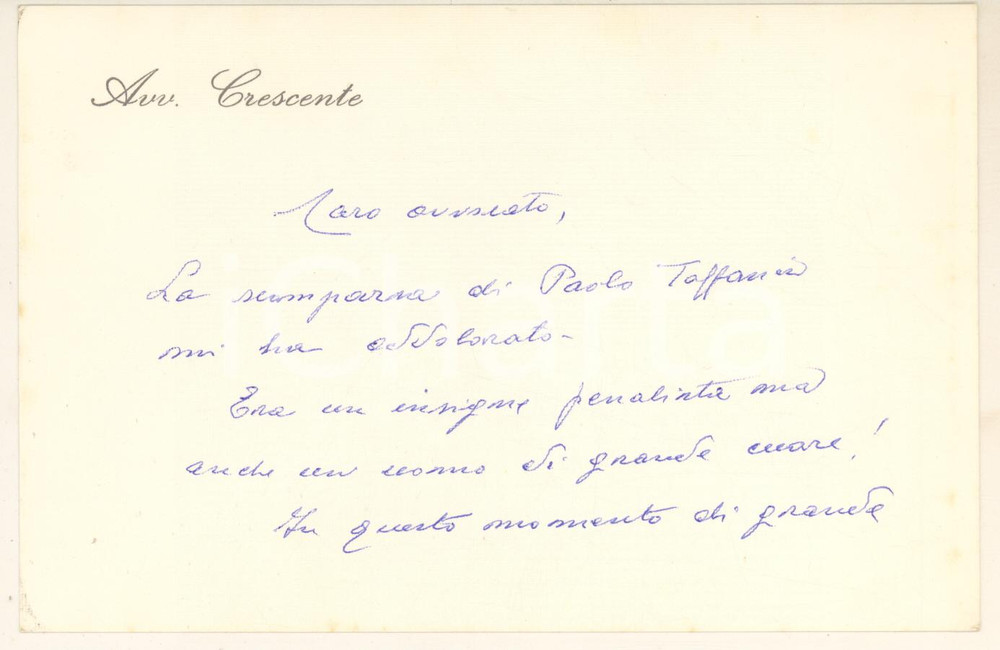 Avv. Crescente
Caro avvocato,
La scomparsa di Paolo Toffanin
mi ha addolorato -
Era un insigne penalista ma
anche un uomo di grande cuore!
In questo momento di grande